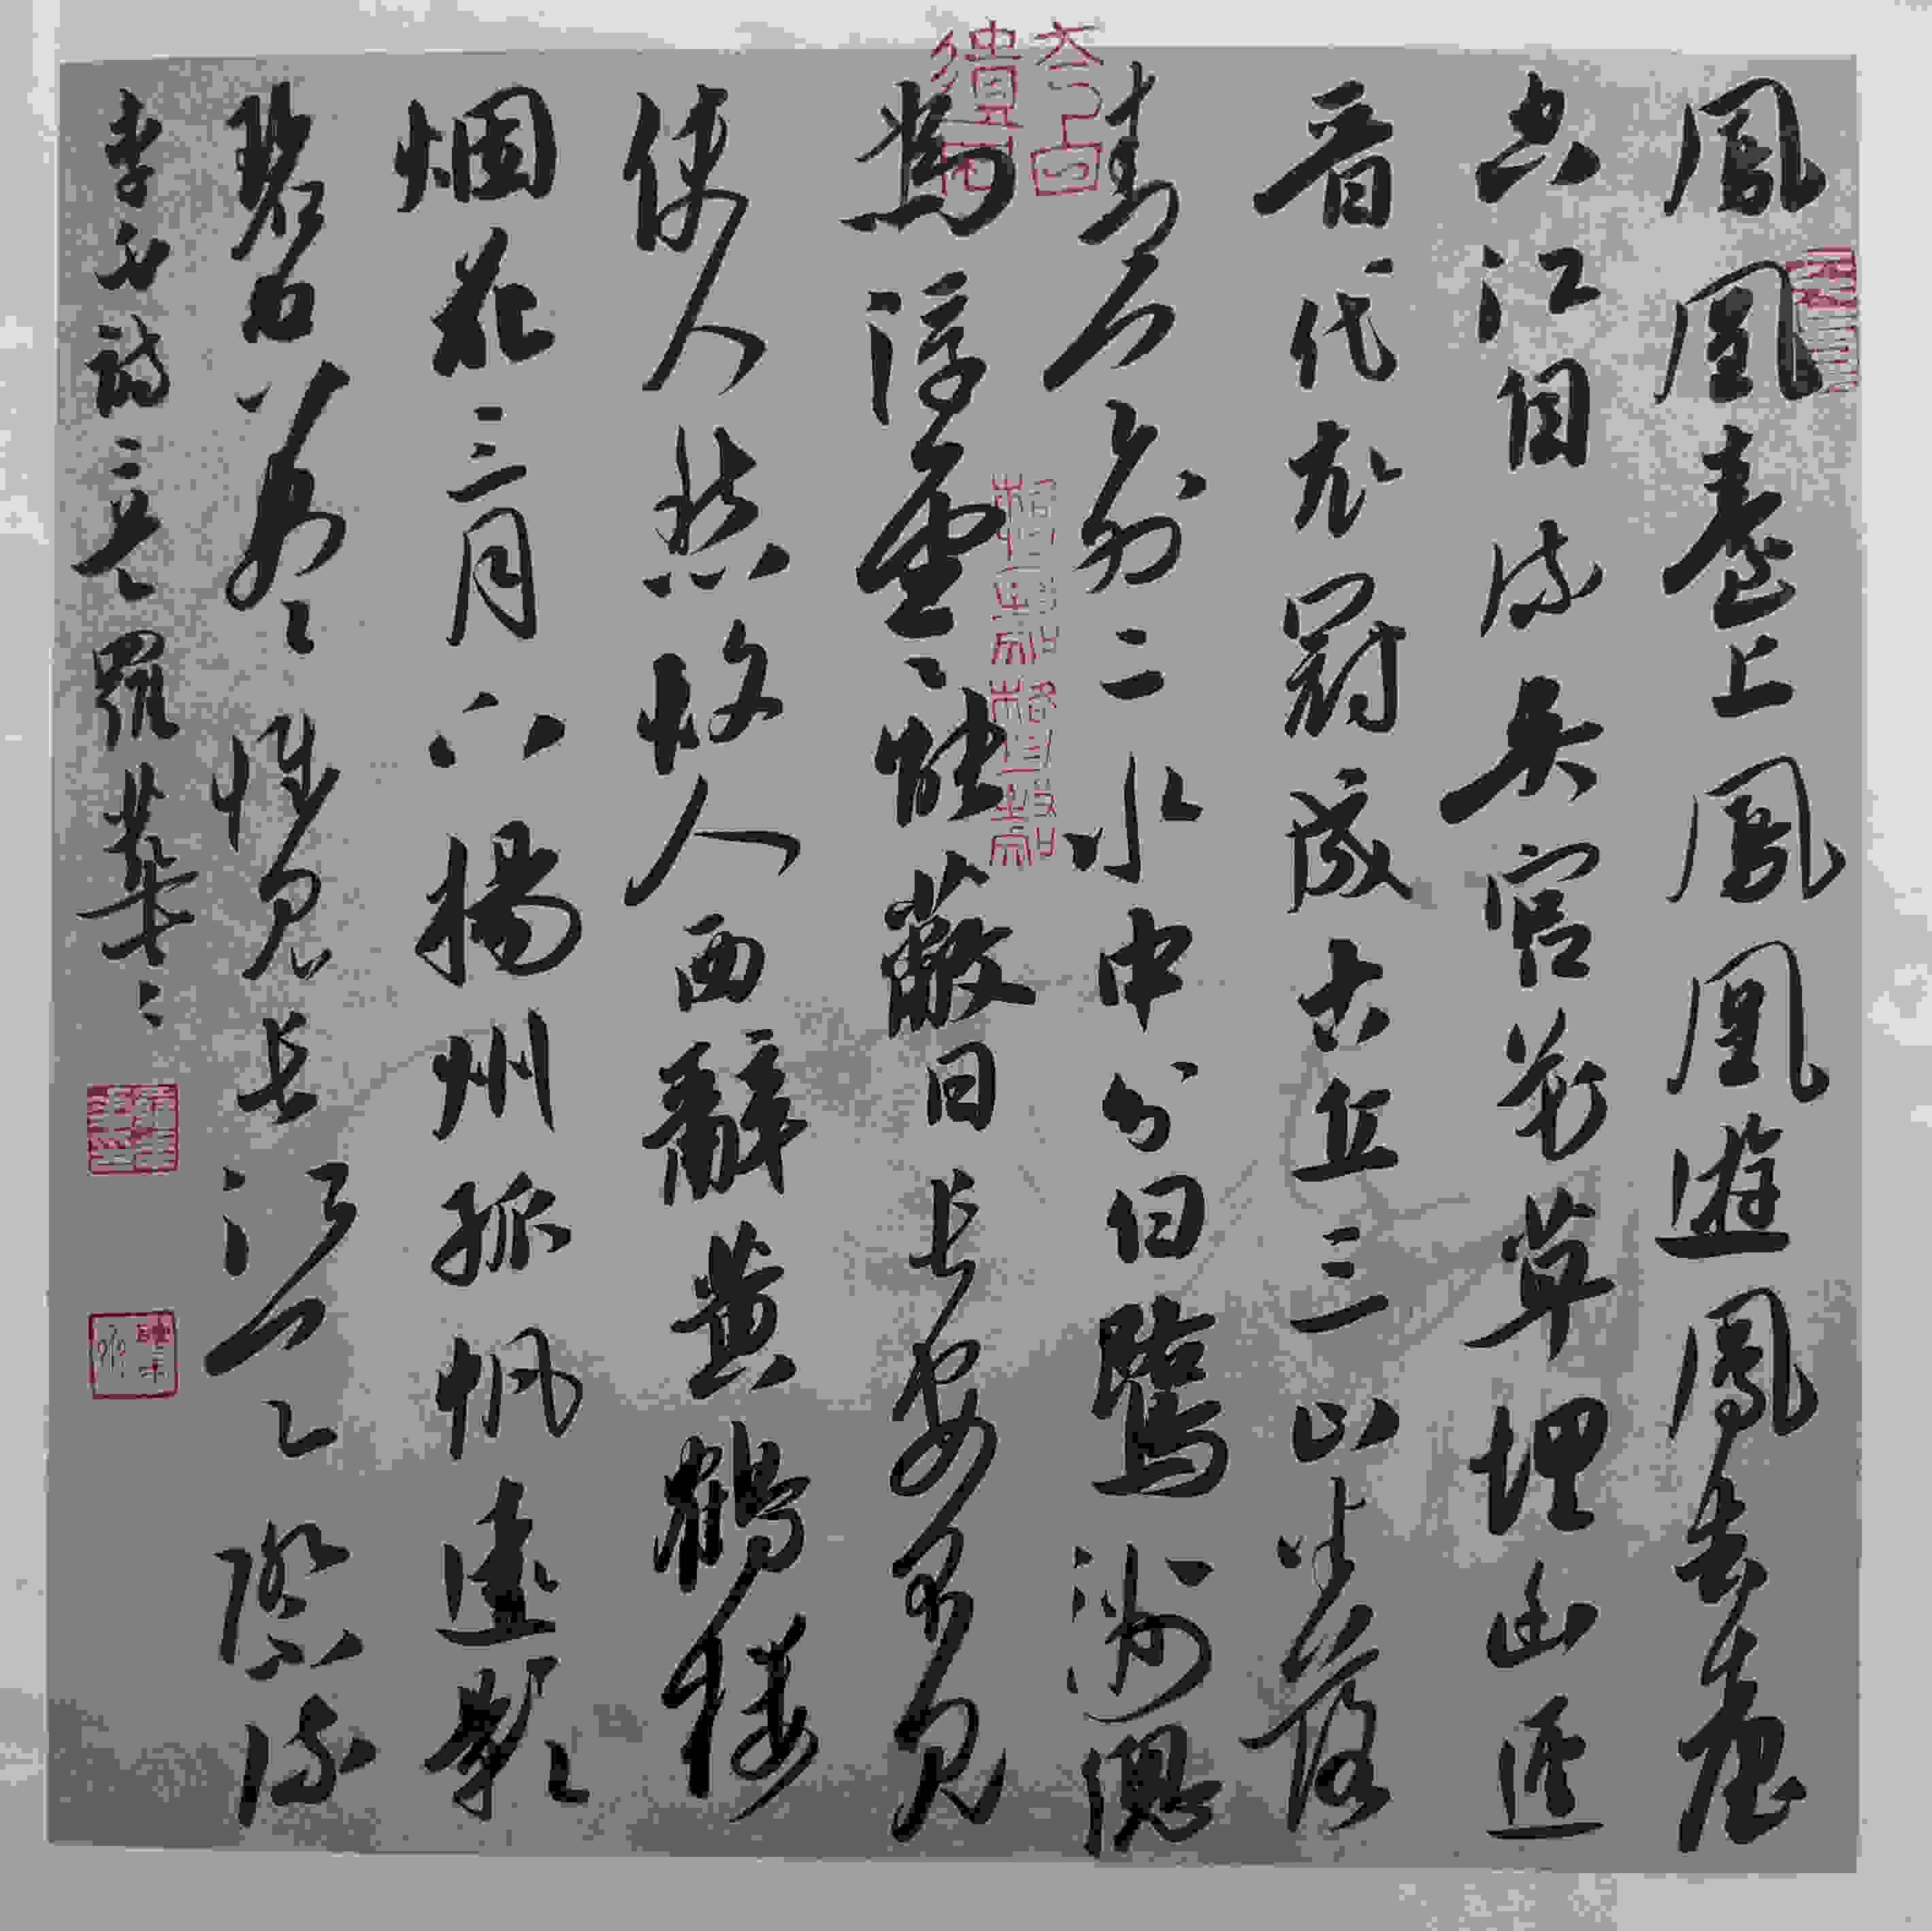 鳳凰臺上鳳凰遊鳳去臺
空江自流吴宫花草埋幽逕
晋代衣冠成古丘三山半落
青天外二水中分白鷺洲總
為浮雲能蔽日长安不見
使人愁故人西辭黄鶴楼
烟花三月下揚州孤帆遠影
碧空盡惟見长江天際流
李白詩二首羅